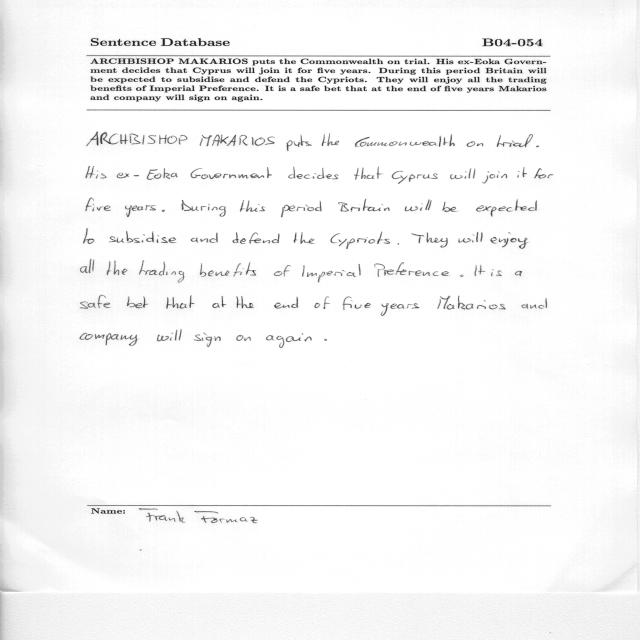 Sentence Database B04-054
ARCHBISHOP MAKARIOS puts the Commonwealth on trial. His ex-Eoka Govern-
ment decides that Cyprus will join it for five years. During this period Britain will
be expected to subsidise and defend the Cypriots. They will enjoy all the trading
benefits of Imperial Preference. It is a safe bet that at the end of five years Makarios
and company will sign on again.
ARCHBISHOP MAKARIOS puts the Commonwealth on trial.
His ex-Eoka Government decides that Cyprus will join it for
five years. During this period Britain will be expected
to subsidise and defend the Cypriots. They will enjoy
all the trading benefits of Imperial Preference. It is a
safe bet that at the end of five years Makarios and
company will sign on again.
Name: Frank Formaz